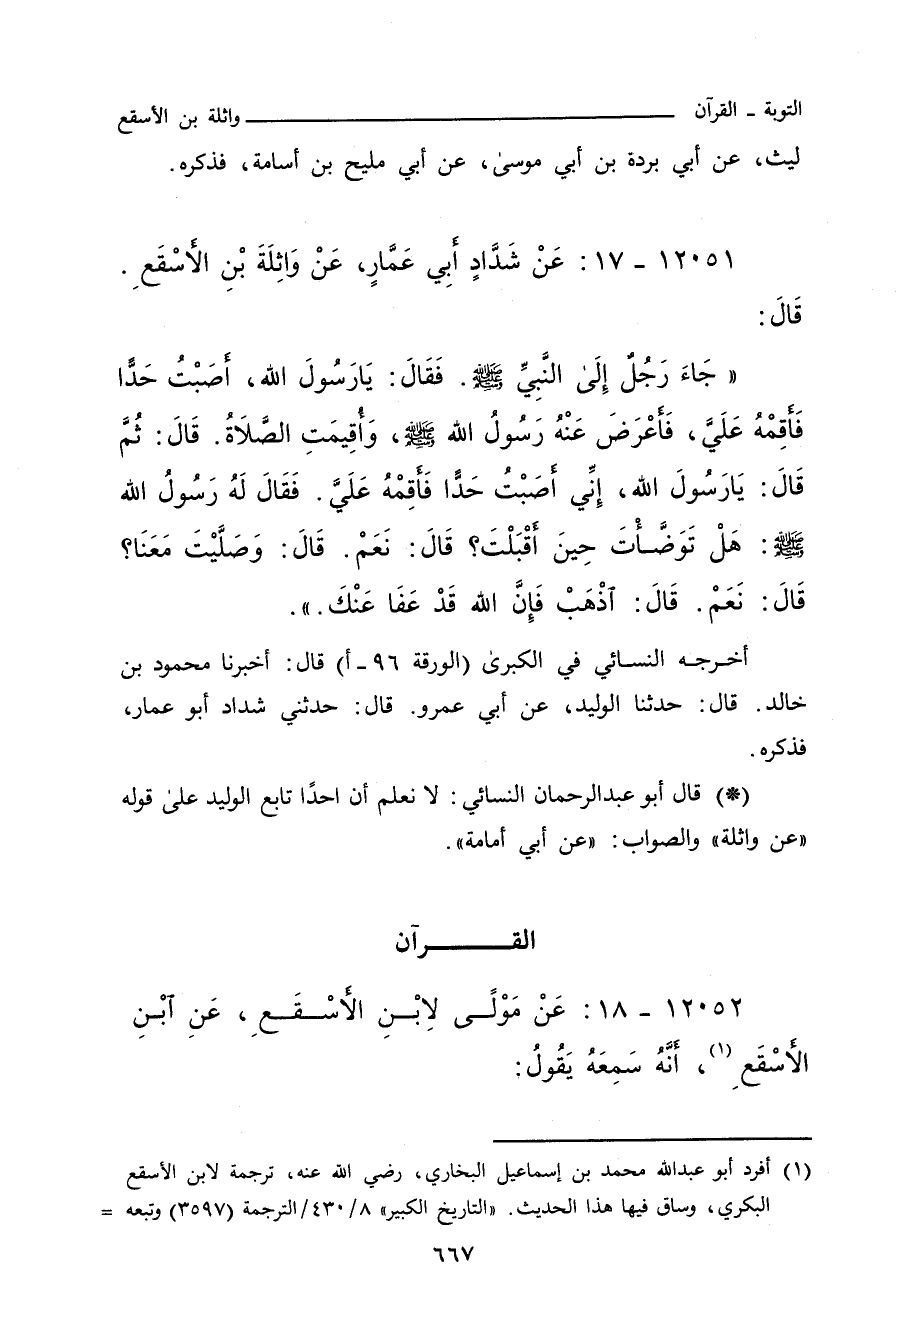 التوبة ـ القرآن ــــــــــــــــــــ واثلة بن الأسقع
ليث، عن أبي بردة بن أبي موسىٰ، عن أبي مليح بن أسامة، فذكره.
١٢٠٥١ ـ ١٧: عَنْ شَدَّادٍ أَبِي عَمَّارٍ، عَنْ وَاثِلَةَ بْنِ الأَسْقَعِ.
قَالَ:
«جَاءَ رَجُلٌ إِلَىٰ النَّبِيِّ ﷺ. فَقَالَ: يَارَسُولَ الله، أَصَبْتُ حَدًّا
فَأَقِمْهُ عَلَيَّ، فَأَعْرَضَ عَنْهُ رَسُولُ الله ﷺ، وَأُقِيمَتِ الصَّلاَةُ. قَالَ: ثُمَّ
قَالَ: يَارَسُولَ الله، إِنِّي أَصَبْتُ حَدًّا فَأَقِمْهُ عَلَيَّ. فَقَالَ لَهُ رَسُولُ الله
ﷺ: هَلْ تَوَضَّأْتَ حِينَ أَقْبَلْتَ؟ قَالَ: نَعَمْ. قَالَ: وَصَلَّيْتَ مَعَنَا؟
قَالَ: نَعَمْ. قَالَ: ٱذْهَبْ فَإِنَّ الله قَدْ عَفَا عَنْكَ.».
أخرجه النسائي في الكبرىٰ (الورقة ٩٦ ـ أ) قال: أخبرنا محمود بن
خالد. قال: حدثنا الوليد، عن أبي عمرو. قال: حدثني شداد أبو عمار،
فذكره.
(*) قال أبو عبدالرحمان النسائي: لا نعلم أن احدًا تابع الوليد علىٰ قوله
«عن واثلة» والصواب: «عن أبي أمامة».
القـــــــرآن
١٢٠٥٢ ـ ١٨: عَنْ مَوْلًى لِابْنِ الأَسْقَعِ، عَنِ ٱبْنِ
الأَسْقَعِ (١)، أَنَّهُ سَمِعَهُ يَقُولُ:
(١) أفرد أبو عبدالله محمد بن إسماعيل البخاري، رضي الله عنه، ترجمة لابن الأسقع
البكري، وساق فيها هذا الحديث. «التاريخ الكبير» ٤٣٠/٨/الترجمة (٣٥٩٧) وتبعه =
٦٦٧